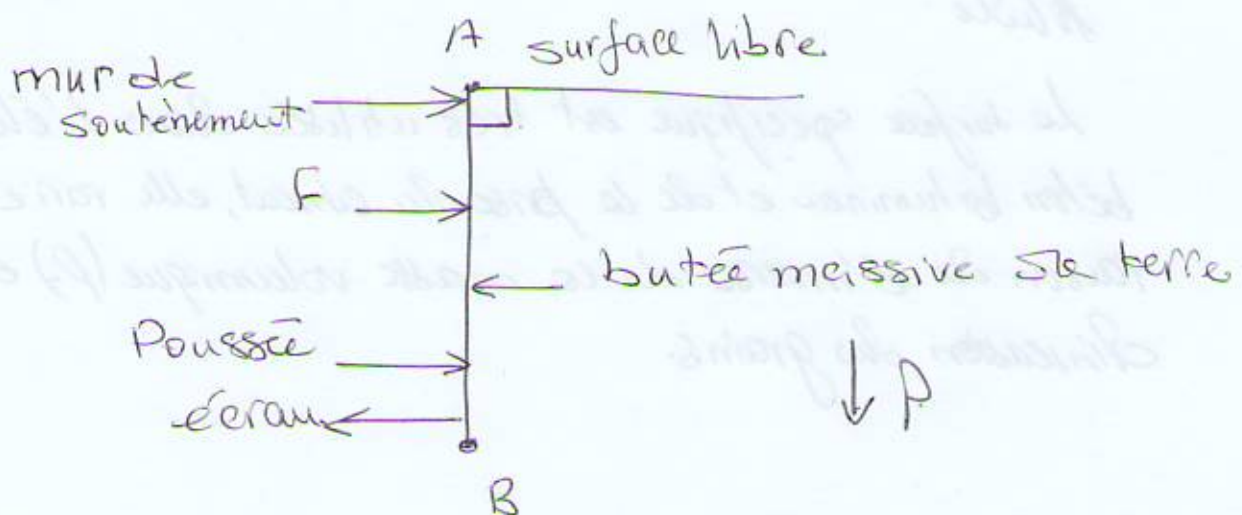 A surface libre
mur de
soutènement
F
butée meissive de terre
Poussée
écran
P
B